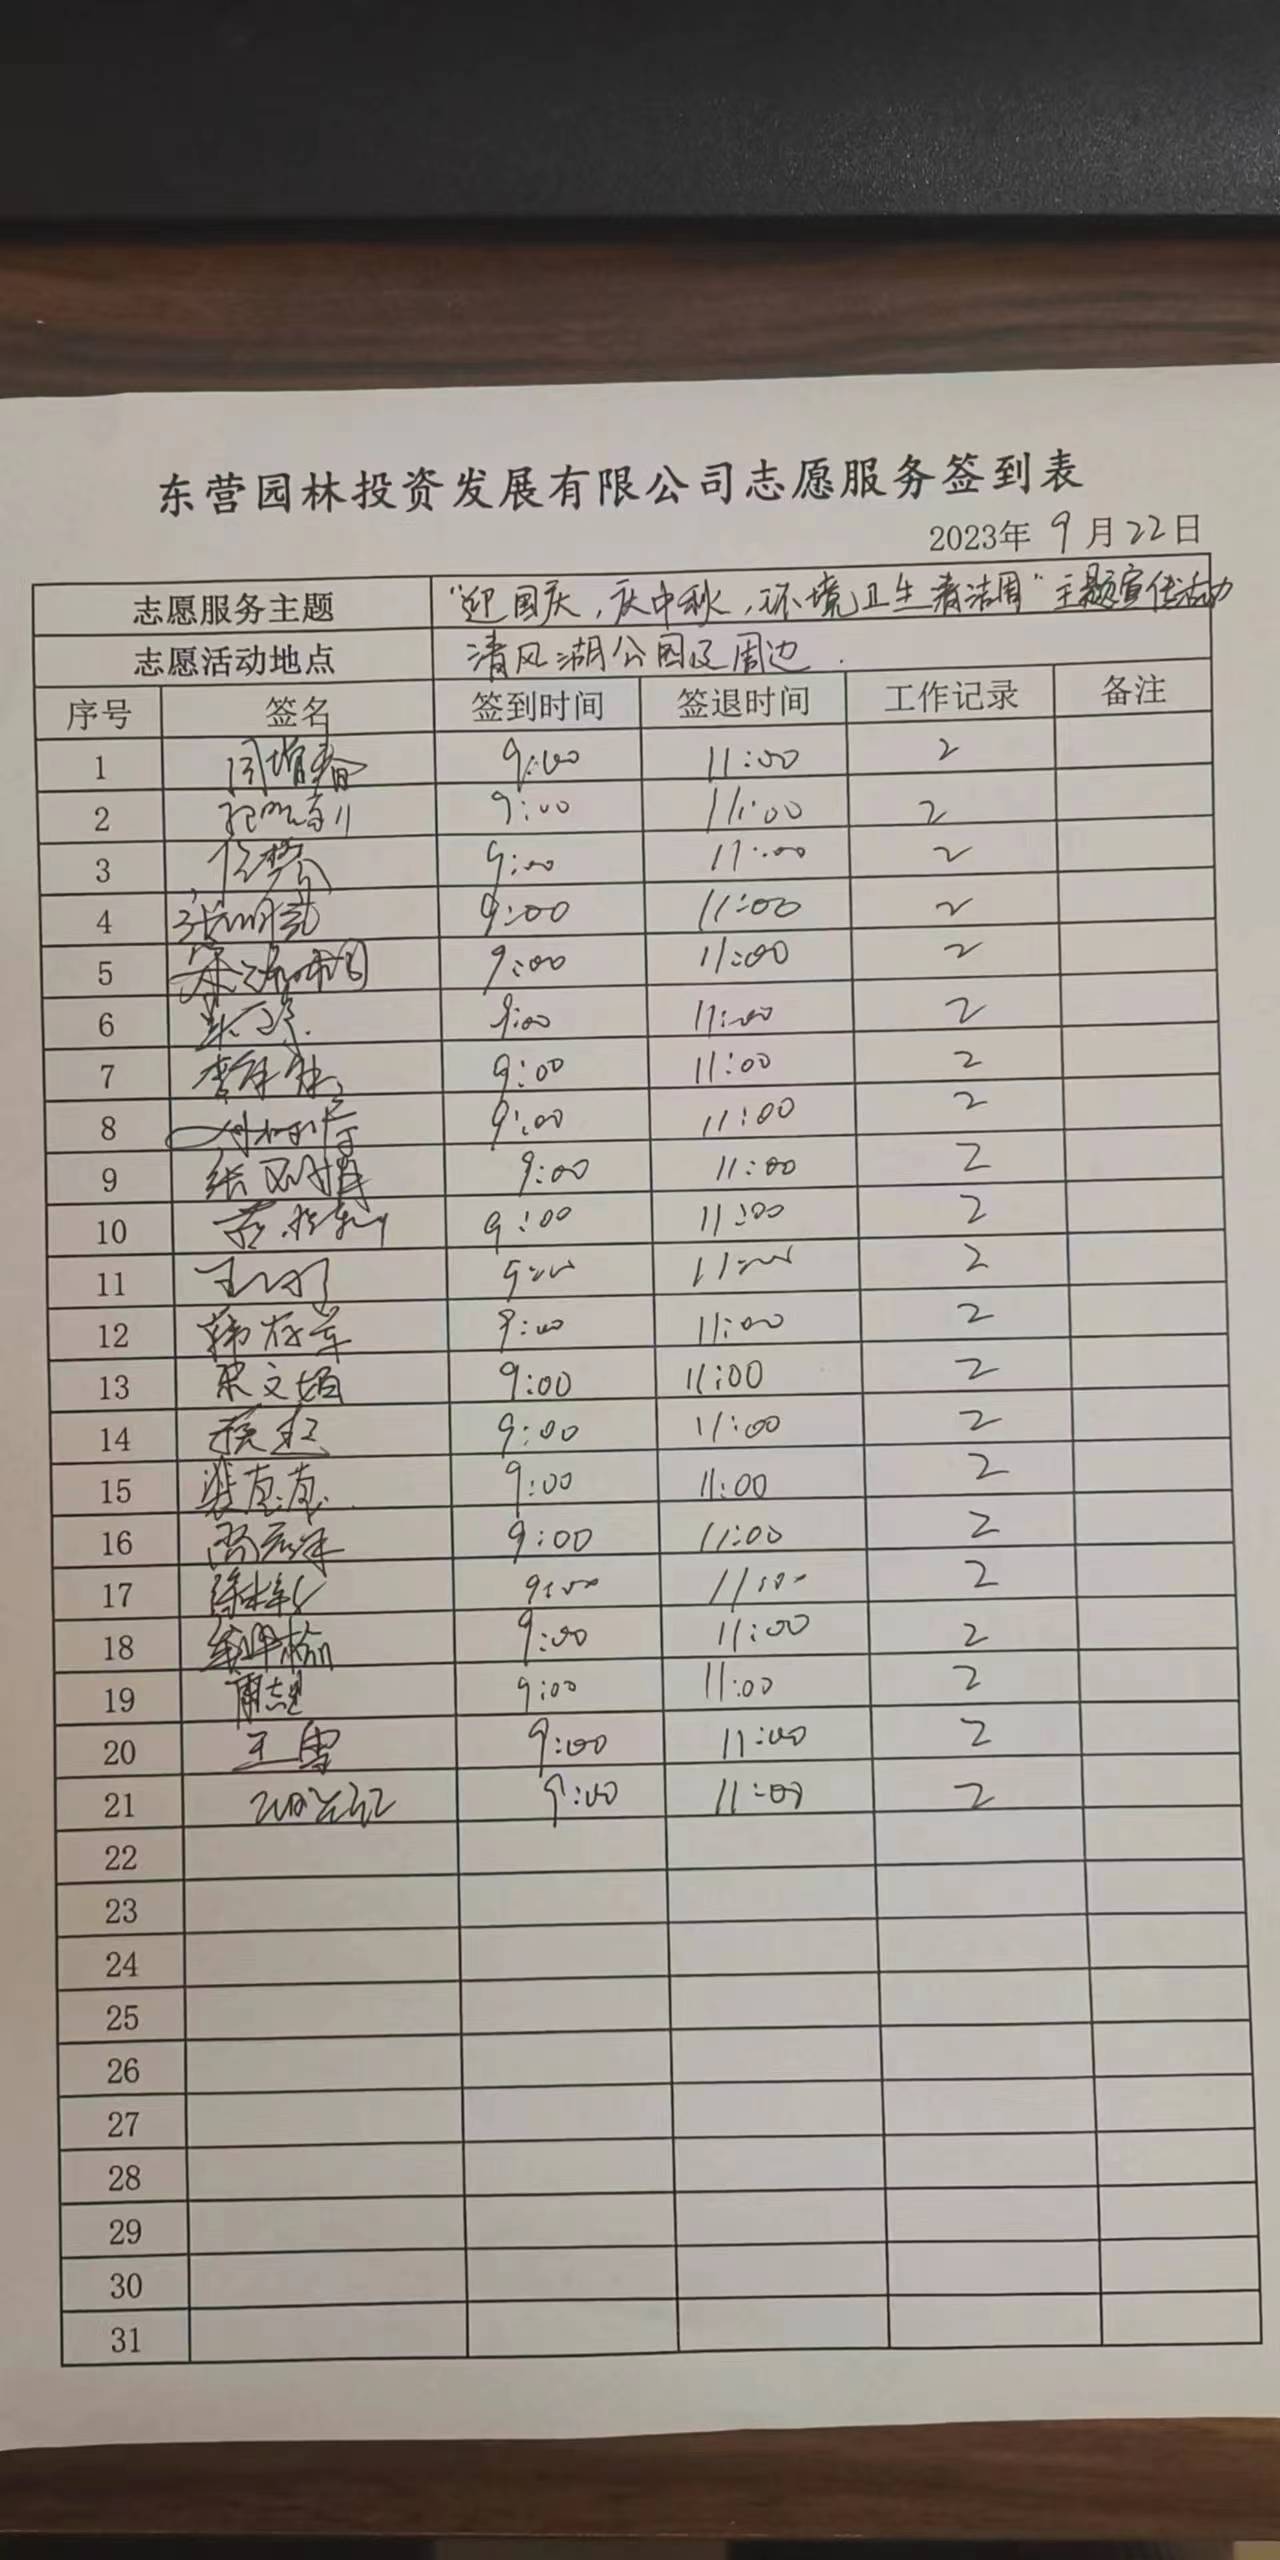 东营园林投资发展有限公司志愿服务签到表
2023年 9月22日
志愿服务主题 “迎国庆,庆中秋,环境卫生清洁周”主题宣传活动
志愿活动地点 清风湖公园及周边.
序号 签名 签到时间 签退时间 工作记录 备注
1 9:00 11:00 2
2 9:00 11:00 2
3 9:00 11:00 2
4 9:00 11:00 2
5 9:00 11:00 2
6 9:00 11:00 2
7 9:00 11:00 2
8 9:00 11:00 2
9 9:00 11:00 2
10 9:00 11:00 2
11 9:00 11:00 2
12 9:00 11:00 2
13 9:00 11:00 2
14 9:00 11:00 2
15 9:00 11:00 2
16 9:00 11:00 2
17 9:00 11:00 2
18 9:00 11:00 2
19 9:00 11:00 2
20 王雪 9:00 11:00 2
21 9:00 11:00 2
22
23
24
25
26
27
28
29
30
31